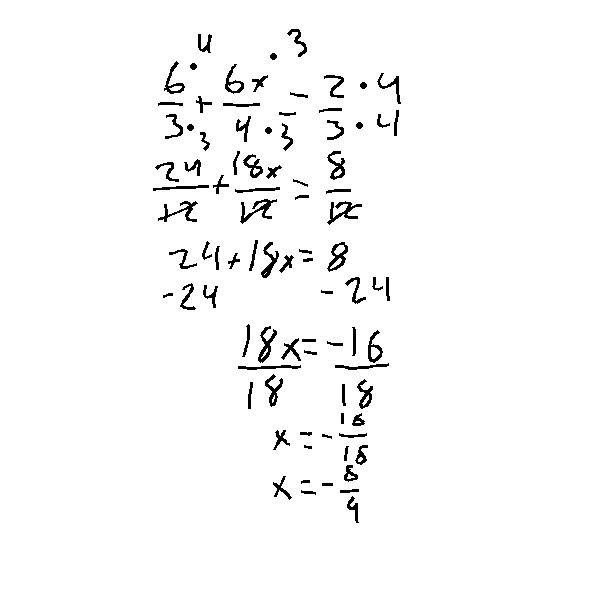 6/3 · 4/3 + 6x/4 · 3/3 = 2/3 · 4/4
24/12 + 18x/12 = 8/12
24 + 18x = 8
-24 - 24
18x/18 = -16/18
x = -16/18
x = -8/9